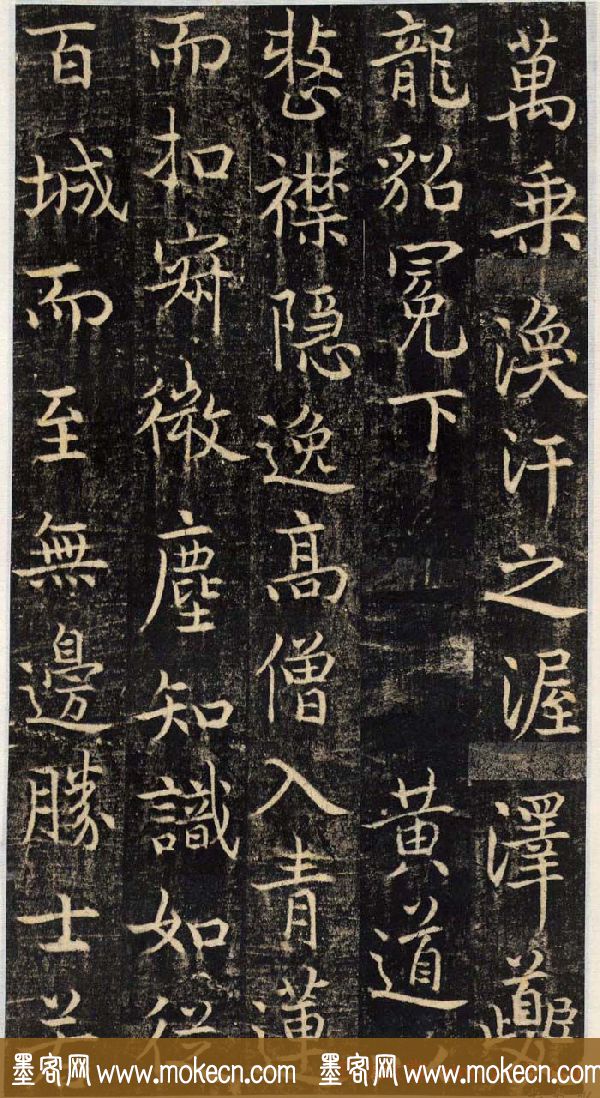 萬乗渙汗之渥澤夔
龍貂冕下黄道
整襟隱逸髙僧入青蓮
而扣寂微塵知識如從
百城而至無邊勝士若
墨客网 www.mokecn.com 墨客网 www.mokecn.com